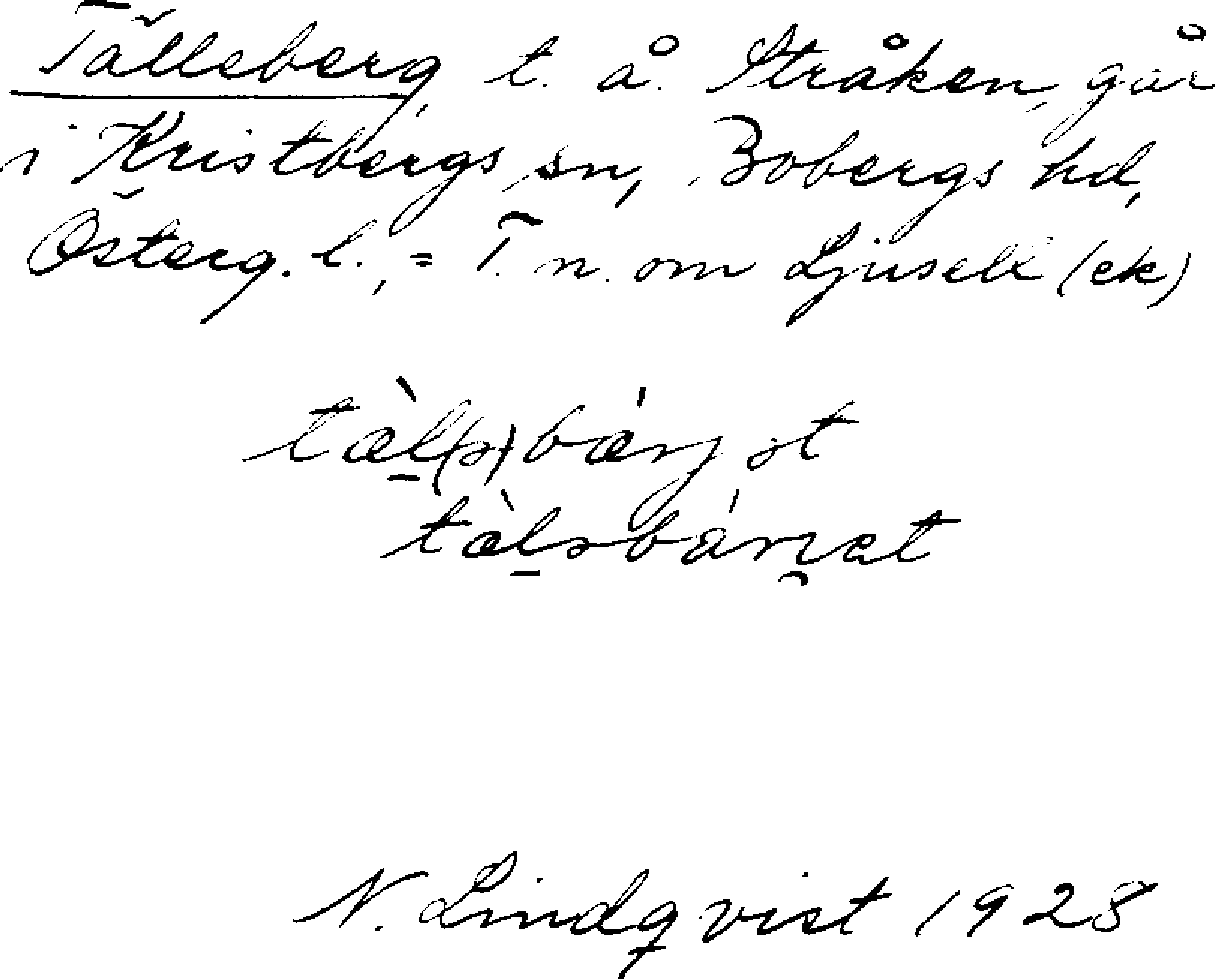 Tälleberg, t. å. Stråken, går
i Kristbergs sn, Bobergs hd,
Österg. l., = T. n. om Ljusell (ek)
tæ̀l(s)bærj st
tæ̀lsbár
N. Lindqvist 1928